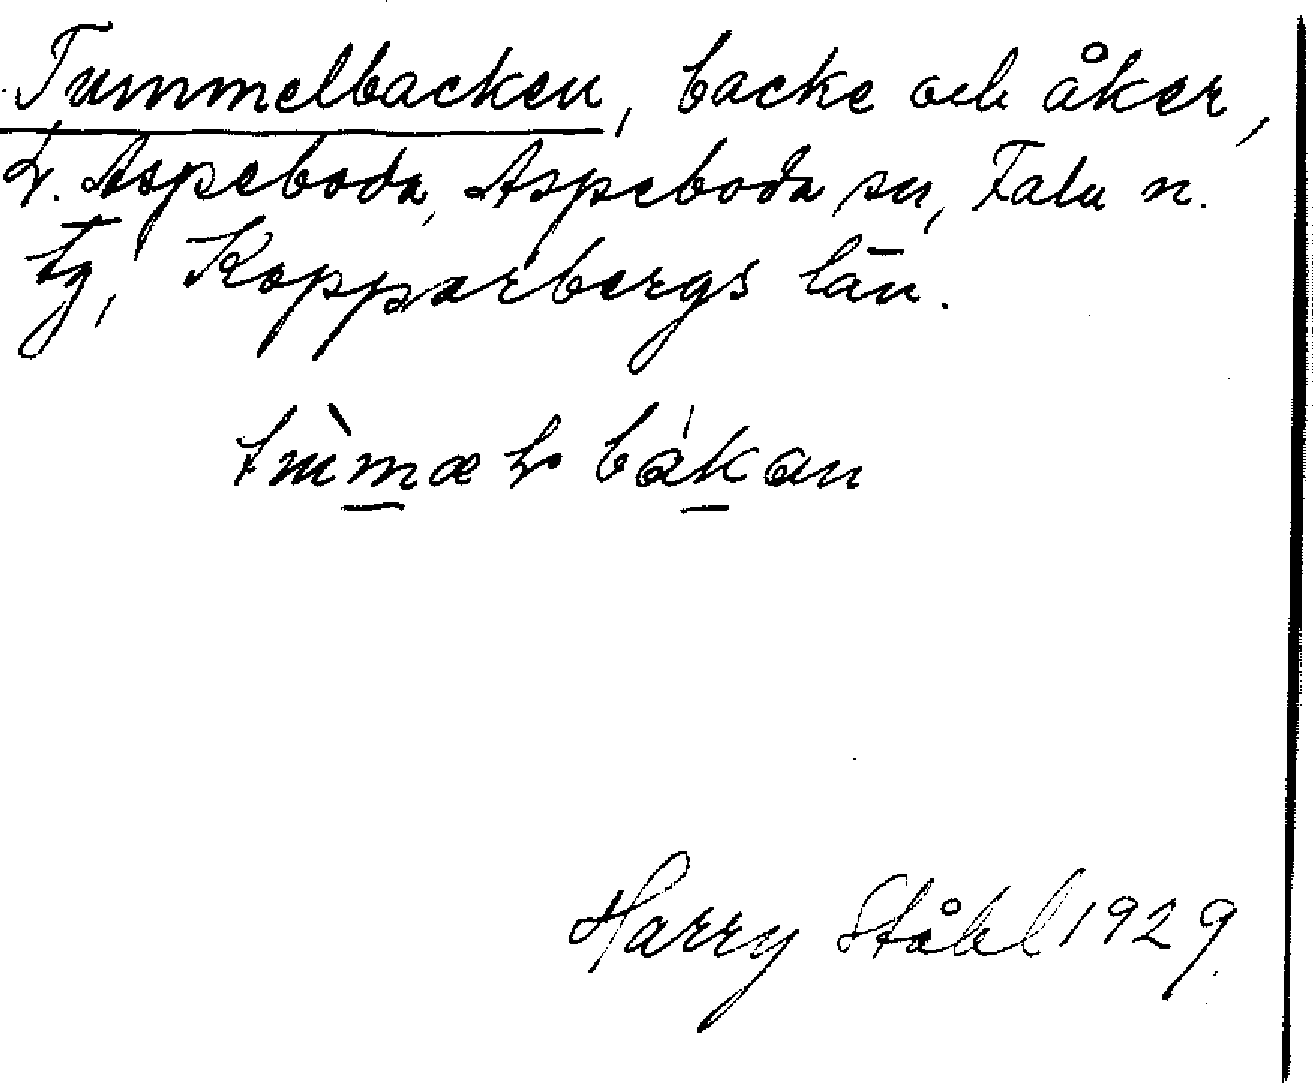 Tummelbacken, backe och åker,
L. Aspeboda, Aspeboda sn, Falu n.
tg, Kopparbergs län.
Harry Ståhl 1929.